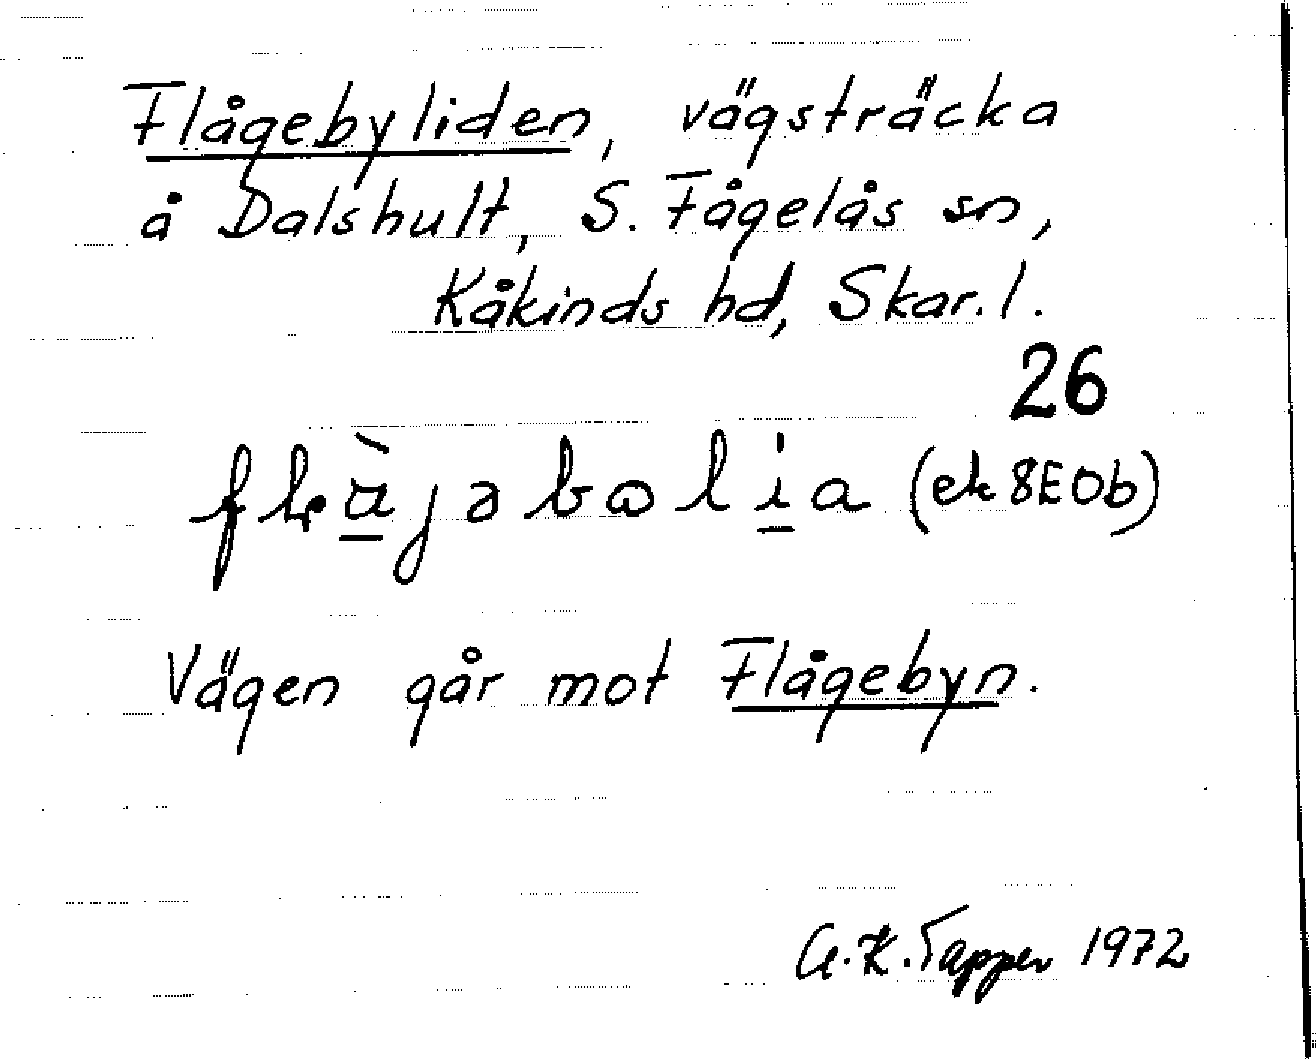 Flågebyliden, vägsträcka
å Dalshult, S. Fågelås sn,
Kåkinds hd, Skar. l.
26
(ek 8E0b)
Vägen går mot Flågebyn.
A. K. Tapper 1972